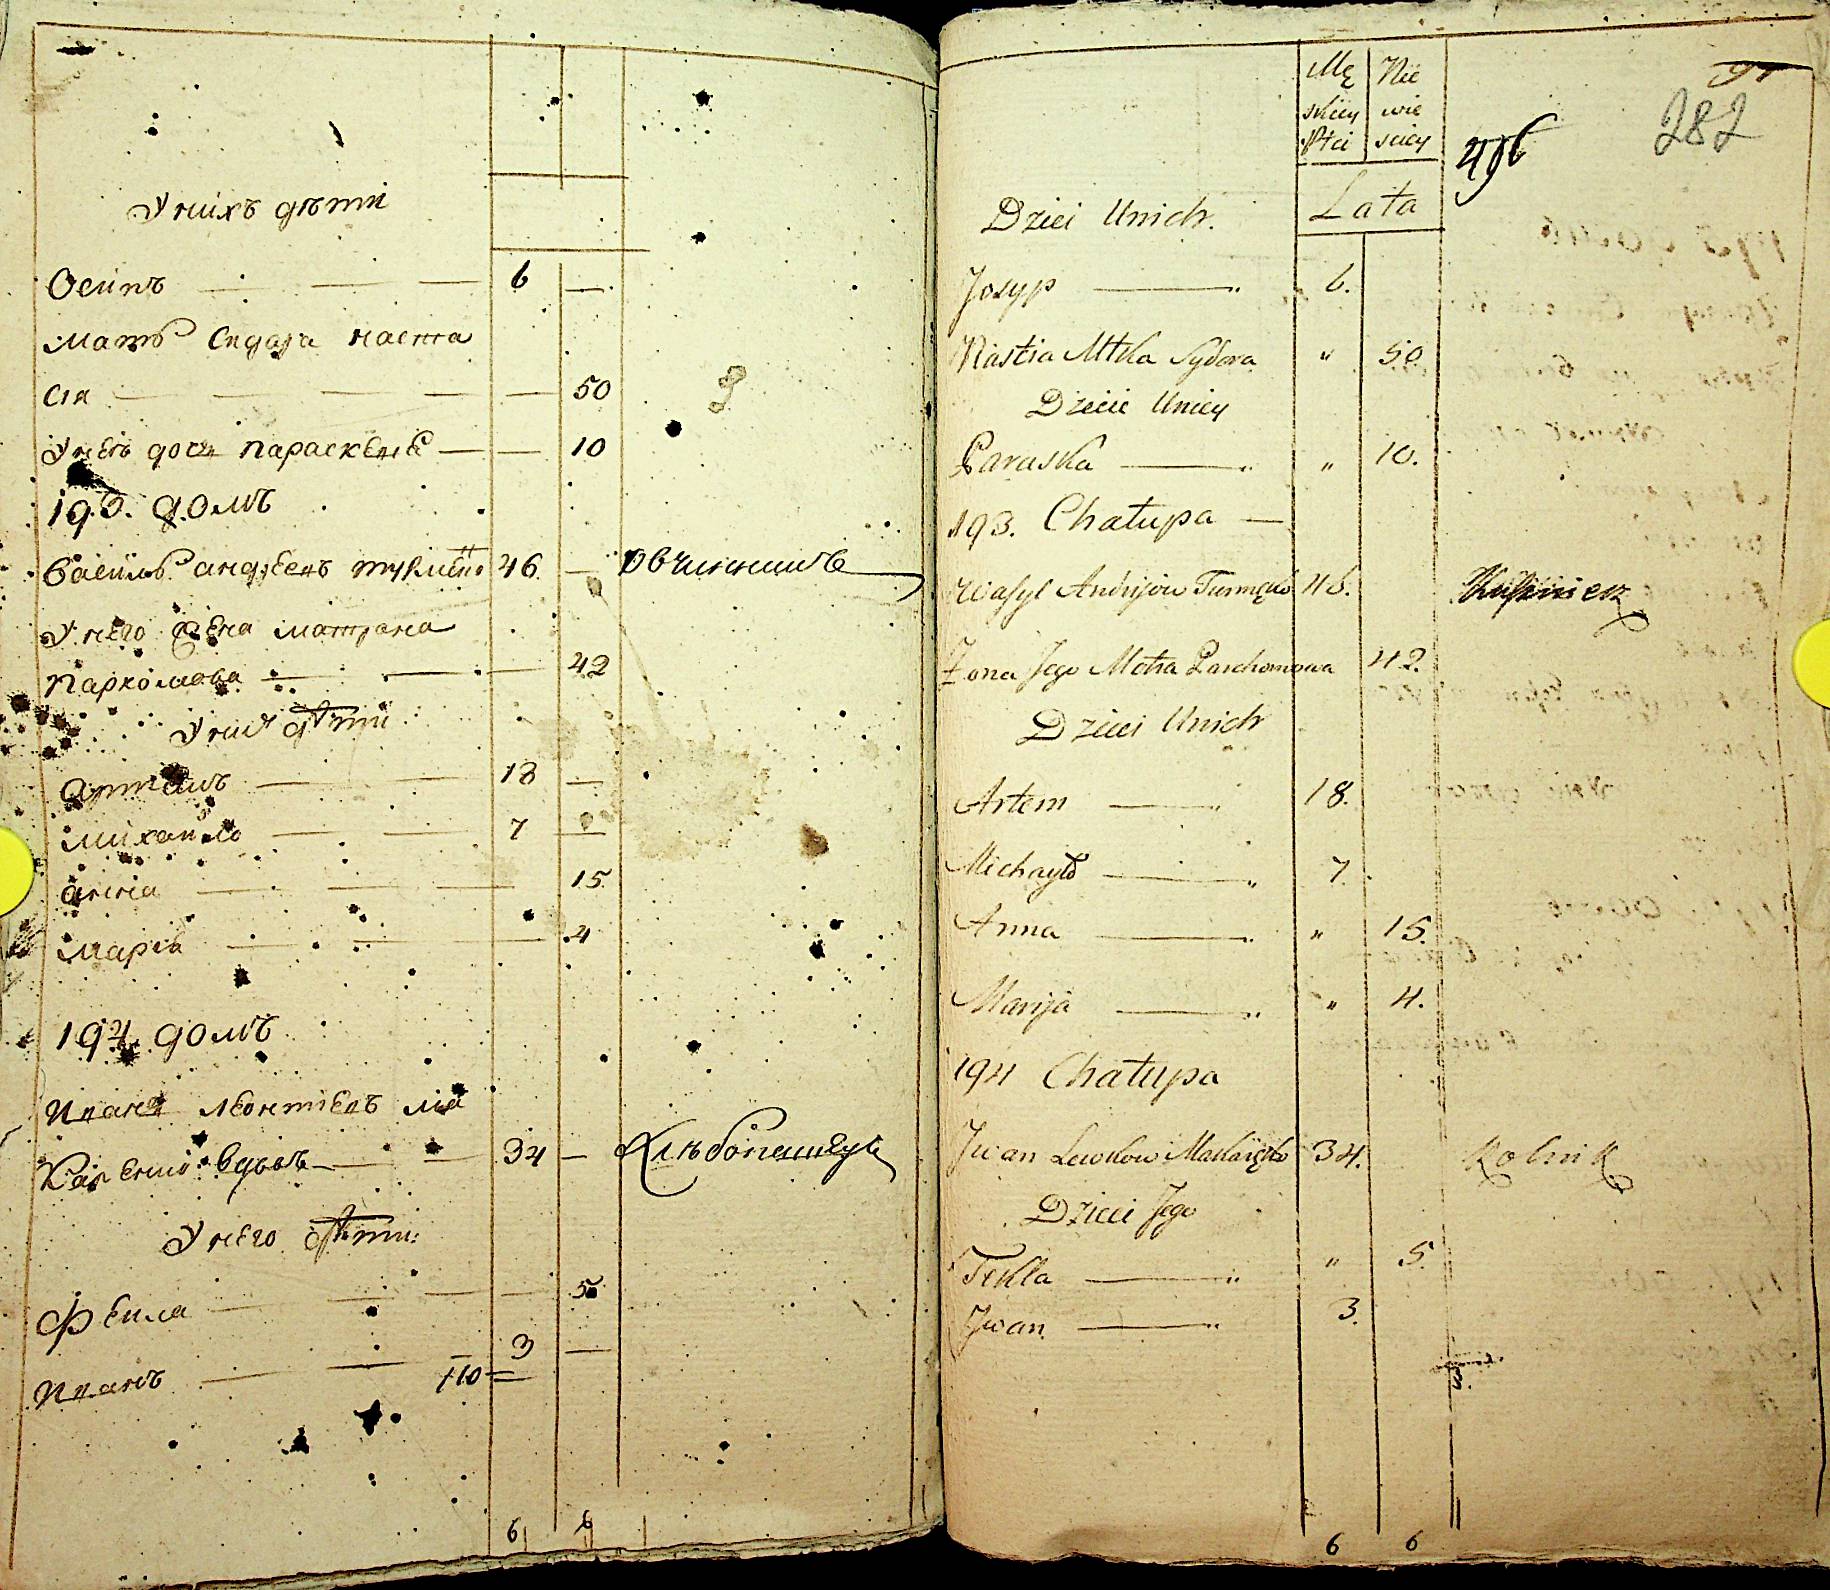 У нихъ дѣти
Осипъ — — — 6 —
Мать Сидора Наста
сія — — — — 50
У неѣ дочь Параскевіе — — 10
193. домъ
Василь Андрѣевъ 46. — Овчинникъ
У него жена Матрона
Пархомова — — — 42
У них дѣтіи
Артемъ — — 18 —
Михайло — — 7 —
Анна — — — 15.
Марія — — — 4
194 домъ
Иванъ Леонтіевъ Ма
каренко вдовъ — — 34 — Хлѣбопашецъ
У него дѣти:
Фекла — — — — 5
Иванъ — — — 3 —
110
6 6
Mę Nie
skiey wie
Płci sciey
91
282
496
Dzieci Unich. Lata
Josyp — " 6.
Nastia Mtka Sydora " 50.
Dziecie Uniey
Paraska — " " 10.
193. Chałupa —
Wasyl Andrijow 46. Kuśnierz
Żona Jego Motra Parchomowa 42.
Dzieci Unich
Artem — " 18.
Michayło — " 7.
Anna — " " 15.
Marija — " " 4.
194 Chałupa
Jwan Lewkow Makaręko 34. Rolnik
Dzieci Jego
Tekla — " " 5.
Jwan — " 3.
6 6